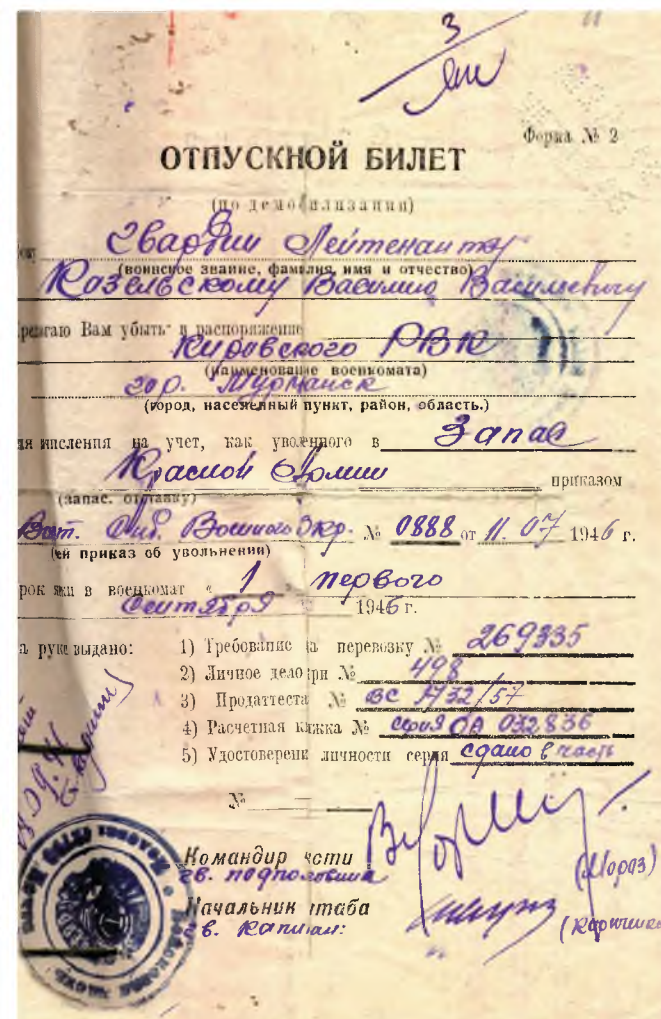 3
11
Форма № 2
ОТПУСКНОЙ БИЛЕТ
(по демобилизации)
Гвардии Лейтенанту
(воинское звание, фамилия, имя и отчество)
Козельскому Василию Васильевичу
Вам убыть в распоряжение
Кировского РВК
(наименование военкомата)
гор. Мурманск
(город, населенный пункт, район, область.)
на учет, как уволенного в Запас
Красной Армии приказом
(запас. отставку)
Сиб. Военного Окр. № 0888 от 11. 07 1946 г.
(чей приказ об увольнении)
в военкомат « 1 » первого
Сентября 1946 г.
руки выдано:
1) Требование на перевозку № 269335
2) Личное дело при № 498
3) Продаттеста № ВС 1732/57
4) Расчетная книжка № серия ОА 032836
5) Удостоверени личности серия сдано в часть
№
Командир части
гв. подполковник
(Мороз)
Начальник штаба
гв. Капитан: